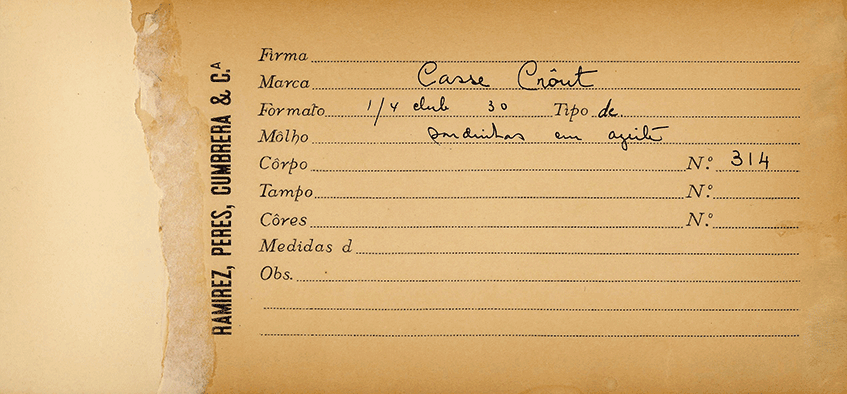 RAMIREZ, PERES, CUMBRERA & C.ª
Firma
Marca Casse Crôut
Formato 1/4 club 30 Tipo de
Môlho sardinhas em azeite
Côrpo Nº 314
Tampo Nº
Côres Nº
Medidas d
Obs.